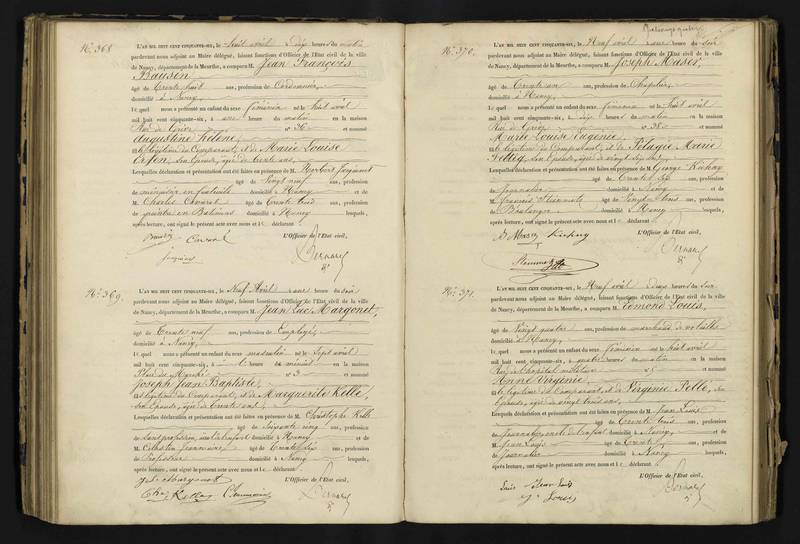 N.° 368
L'AN MIL HUIT CENT CINQUANTE-SIX, le huit avril Dix heures du matin
pardevant nous adjoint au Maire délégué, faisant fonctions d'Officier de l'Etat civil de la ville
de Nancy, département de la Meurthe, a comparu M. Jean François
Bausin
âgé de trente huit ans, profession de Cordonnier,
domicilié à Nancy,
lequel nous a présenté un enfant du sexe féminin né le huit avril
mil huit cent cinquante-six, à une heure du matin en la maison
Rue de n° 36 et nommé
Augustine hélène,
Marie Louise
son épouse, âgée de trente ans,
Lesquelles déclaration et présentation ont été faites en présence de M.
âgé de vingt neuf ans, profession
de menuisier en fauteuils domicilié à Nancy et de
M. Charles âgé de trente trois ans, profession
de peintre en Bâtimens domicilié à Nancy lesquels,
après lecture, ont signé le présent acte avec nous et le déclarant
L'Officier de l'Etat civil,
Bernard
N.° 369
L'AN MIL HUIT CENT CINQUANTE-SIX, le Neuf Avril une heure du soir
pardevant nous adjoint au Maire délégué, faisant fonctions d'Officier de l'Etat civil de la ville
de Nancy, département de la Meurthe, a comparu M. Jean Luc Margonet,
âgé de trente neuf ans, profession de Employé,
domicilié à Nancy,
lequel nous a présenté un enfant du sexe masculin né le sept avril
mil huit cent cinquante-six, à heure de en la maison
Place du Marché n° 3 et nommé
Joseph Jean Baptiste,
obligation du Comparant, et de Marguerite Kelle,
son épouse, âgée de trente ans
Lesquelles déclaration et présentation ont été faites en présence de M. Christophe Kelle
âgé de soixante cinq ans, profession
de sans profession, domicilié à Nancy et de
M. Célestin âgé de trente six ans, profession
de Professeur domicilié à Nancy lesquels,
après lecture, ont signé le présent acte avec nous et le déclarant
L'Officier de l'Etat civil,
Bernard
N.° 370
L'AN MIL HUIT CENT CINQUANTE-SIX, le Neuf avril une heure du soir
pardevant nous adjoint au Maire délégué, faisant fonctions d'Officier de l'Etat civil de la ville
de Nancy, département de la Meurthe, a comparu M. Joseph Maser,
âgé de trente un ans, profession de Chapelier,
domicilié à Nancy,
lequel nous a présenté un enfant du sexe féminin né le huit avril
mil huit cent cinquante-six, à six heures du matin en la maison
Rue de n° 38 et nommé
Marie Louise Eugénie,
obligation du Comparant, et de Pélagie Marie
son épouse, âgée de vingt six ans,
Lesquelles déclaration et présentation ont été faites en présence de M. George
âgé de trente six ans, profession
de Journalier domicilié à Nancy et de
M. François âgé de vingt trois ans, profession
de Boulanger domicilié à Nancy lesquels,
après lecture, ont signé le présent acte avec nous et le déclarant
L'Officier de l'Etat civil,
Bernard
N.° 371
L'AN MIL HUIT CENT CINQUANTE-SIX, le Neuf avril Deux heures du soir
pardevant nous adjoint au Maire délégué, faisant fonctions d'Officier de l'Etat civil de la ville
de Nancy, département de la Meurthe, a comparu M. Edmond Louis,
âgé de Vingt quatre ans, profession de marchand de volailles
domicilié à Nancy,
lequel nous a présenté un enfant du sexe féminin né le huit avril
mil huit cent cinquante-six, à quatre heures du matin en la maison
Rue de l'hôpital militaire n° 5 et nommé
Anne Virginie
obligation du Comparant, et de Virginie Pelle, son
épouse, âgée de vingt trois ans,
Lesquelles déclaration et présentation ont été faites en présence de M. Jean Louis
âgé de trente trois ans, profession
de Journalier domicilié à Nancy, et de
M. Jean Louis âgé de trente ans, profession
de Journalier domicilié à Nancy lesquels,
après lecture, ont signé le présent acte avec nous et le déclarant
L'Officier de l'Etat civil,
Louis Jean Louis
J. Louis
Bernard